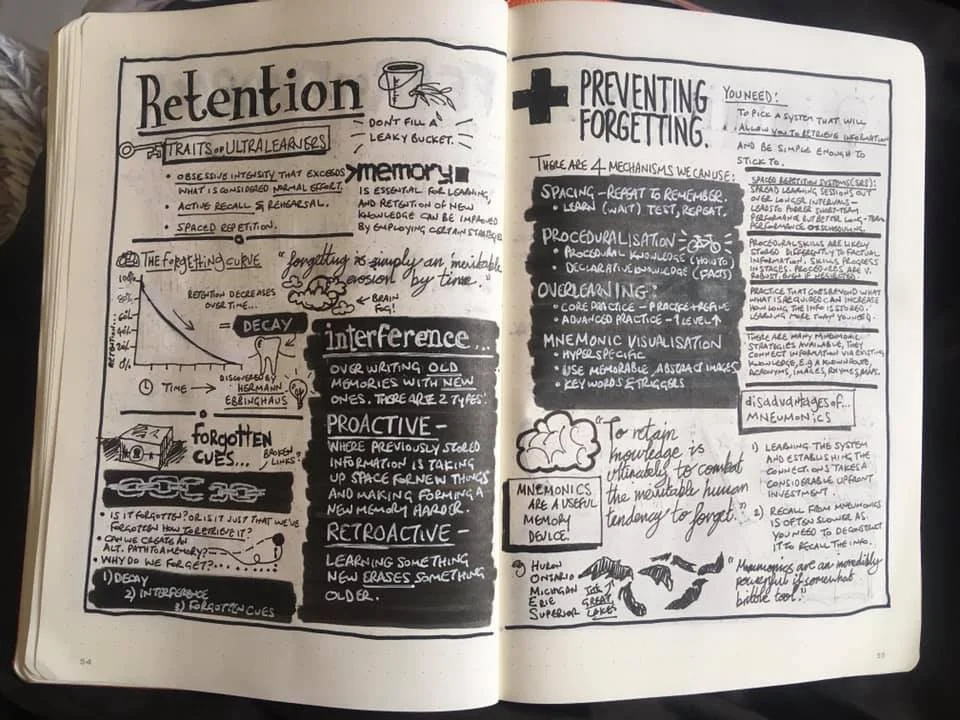 Retention
DON'T FILL A
LEAKY BUCKET.
TRAITS OF ULTRALEARNERS
• OBSESSIVE INTENSITY THAT EXCEEDS
WHAT IS CONSIDERED NORMAL EFFORT.
• ACTIVE RECALL & REHEARSAL.
• SPACED REPETITION.
memory
IS ESSENTIAL FOR LEARNING,
AND RETENTION OF NEW
KNOWLEDGE CAN BE IMPROVED
BY EMPLOYING CERTAIN STRATEGIES
THE FORGETTING CURVE
100%
80%
60%
40%
20%
0%
RETENTION
RETENTION DECREASES
OVER TIME...
= DECAY
TIME →
DISCOVERED BY
HERMANN
EBBINGHAUS
"forgetting is simply an inevitable
erosion by time."
BRAIN
FOG!
FORGOTTEN
CUES...
BROKEN
LINKS?
• IS IT FORGOTTEN? OR IS IT JUST THAT WE'VE
FORGOTTEN HOW TO RETRIEVE IT?
• CAN WE CREATE AN
ALT. PATH TO A MEMORY?
• WHY DO WE FORGET?
1) DECAY
2) INTERFERENCE
3) FORGOTTEN CUES
interference...
OVER WRITING OLD
MEMORIES WITH NEW
ONES. THERE ARE 2 TYPES:
PROACTIVE –
WHERE PREVIOUSLY STORED
INFORMATION IS TAKING
UP SPACE FOR NEW THINGS
AND MAKING FORMING A
NEW MEMORY HARDER.
RETROACTIVE –
LEARNING SOMETHING
NEW ERASES SOMETHING
OLDER.
54
PREVENTING
FORGETTING.
YOU NEED:
TO PICK A SYSTEM THAT WILL
ALLOW YOU TO RETRIEVE INFORMATION
AND BE SIMPLE ENOUGH TO
STICK TO.
THERE ARE 4 MECHANISMS WE CAN USE:
SPACING – REPEAT TO REMEMBER.
• LEARN (WAIT) TEST, REPEAT.
PROCEDURALISATION
• PROCEDURAL KNOWLEDGE (HOW TO)
• DECLARATIVE KNOWLEDGE (FACTS)
OVERLEARNING:
• CORE PRACTICE – PRACTICE + REFINE
• ADVANCED PRACTICE – 1 LEVEL ↑
MNEMONIC VISUALISATION
• HYPERSPECIFIC
• USE MEMORABLE, ABSTRACT IMAGES
• KEY WORDS & TRIGGERS
SPACED REPETITION SYSTEMS (SRS):
SPREAD LEARNING SESSIONS OUT
OVER LONGER INTERVALS –
LEADS TO POORER SHORT-TERM
PERFORMANCE BUT BETTER LONG-TERM
PERFORMANCE
PROCEDURAL SKILLS ARE LIKELY
STORED DIFFERENTLY TO FACTUAL
INFORMATION. SKILLS PROGRESS
IN STAGES. PROCEDURES ARE V.
ROBUST, EVEN IF NEGLECTED
PRACTICE THAT GOES BEYOND WHAT
WHAT IS REQUIRED CAN INCREASE
HOW LONG THE INFO IS STORED.
LEARNING MORE THAN YOU NEED.
THERE ARE MANY MNEMONIC
STRATEGIES AVAILABLE, THEY
CONNECT INFORMATION VIA EXISTING
KNOWLEDGE, E.G A KNOWN ROUTE
ACRONYMS, IMAGES, RHYMES,
disadvantages of...
MNEMONICS
1) LEARNING THE SYSTEM
AND ESTABLISHING THE
CONNECTIONS TAKES A
CONSIDERABLE UPFRONT
INVESTMENT.
2) RECALL FROM MNEMONICS
IS OFTEN SLOWER AS
YOU NEED TO DECONSTRUCT
IT TO RECALL THE INFO.
"To retain
knowledge is
ultimately to combat
the inevitable human
tendency to forget."
MNEMONICS
ARE A USEFUL
MEMORY
DEVICE.
HURON
ONTARIO
MICHIGAN
ERIE
SUPERIOR
THE
GREAT
LAKES
"Mnemonics are an incredibly
powerful if somewhat
brittle tool."
55